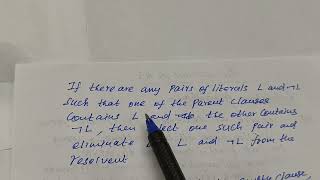 If there are any pairs of literals L and ¬L
such that one of the Parent clauses
contains L and the other contains
¬L, then select one such pair and
eliminate L and ¬L from the
resolvent
clause,